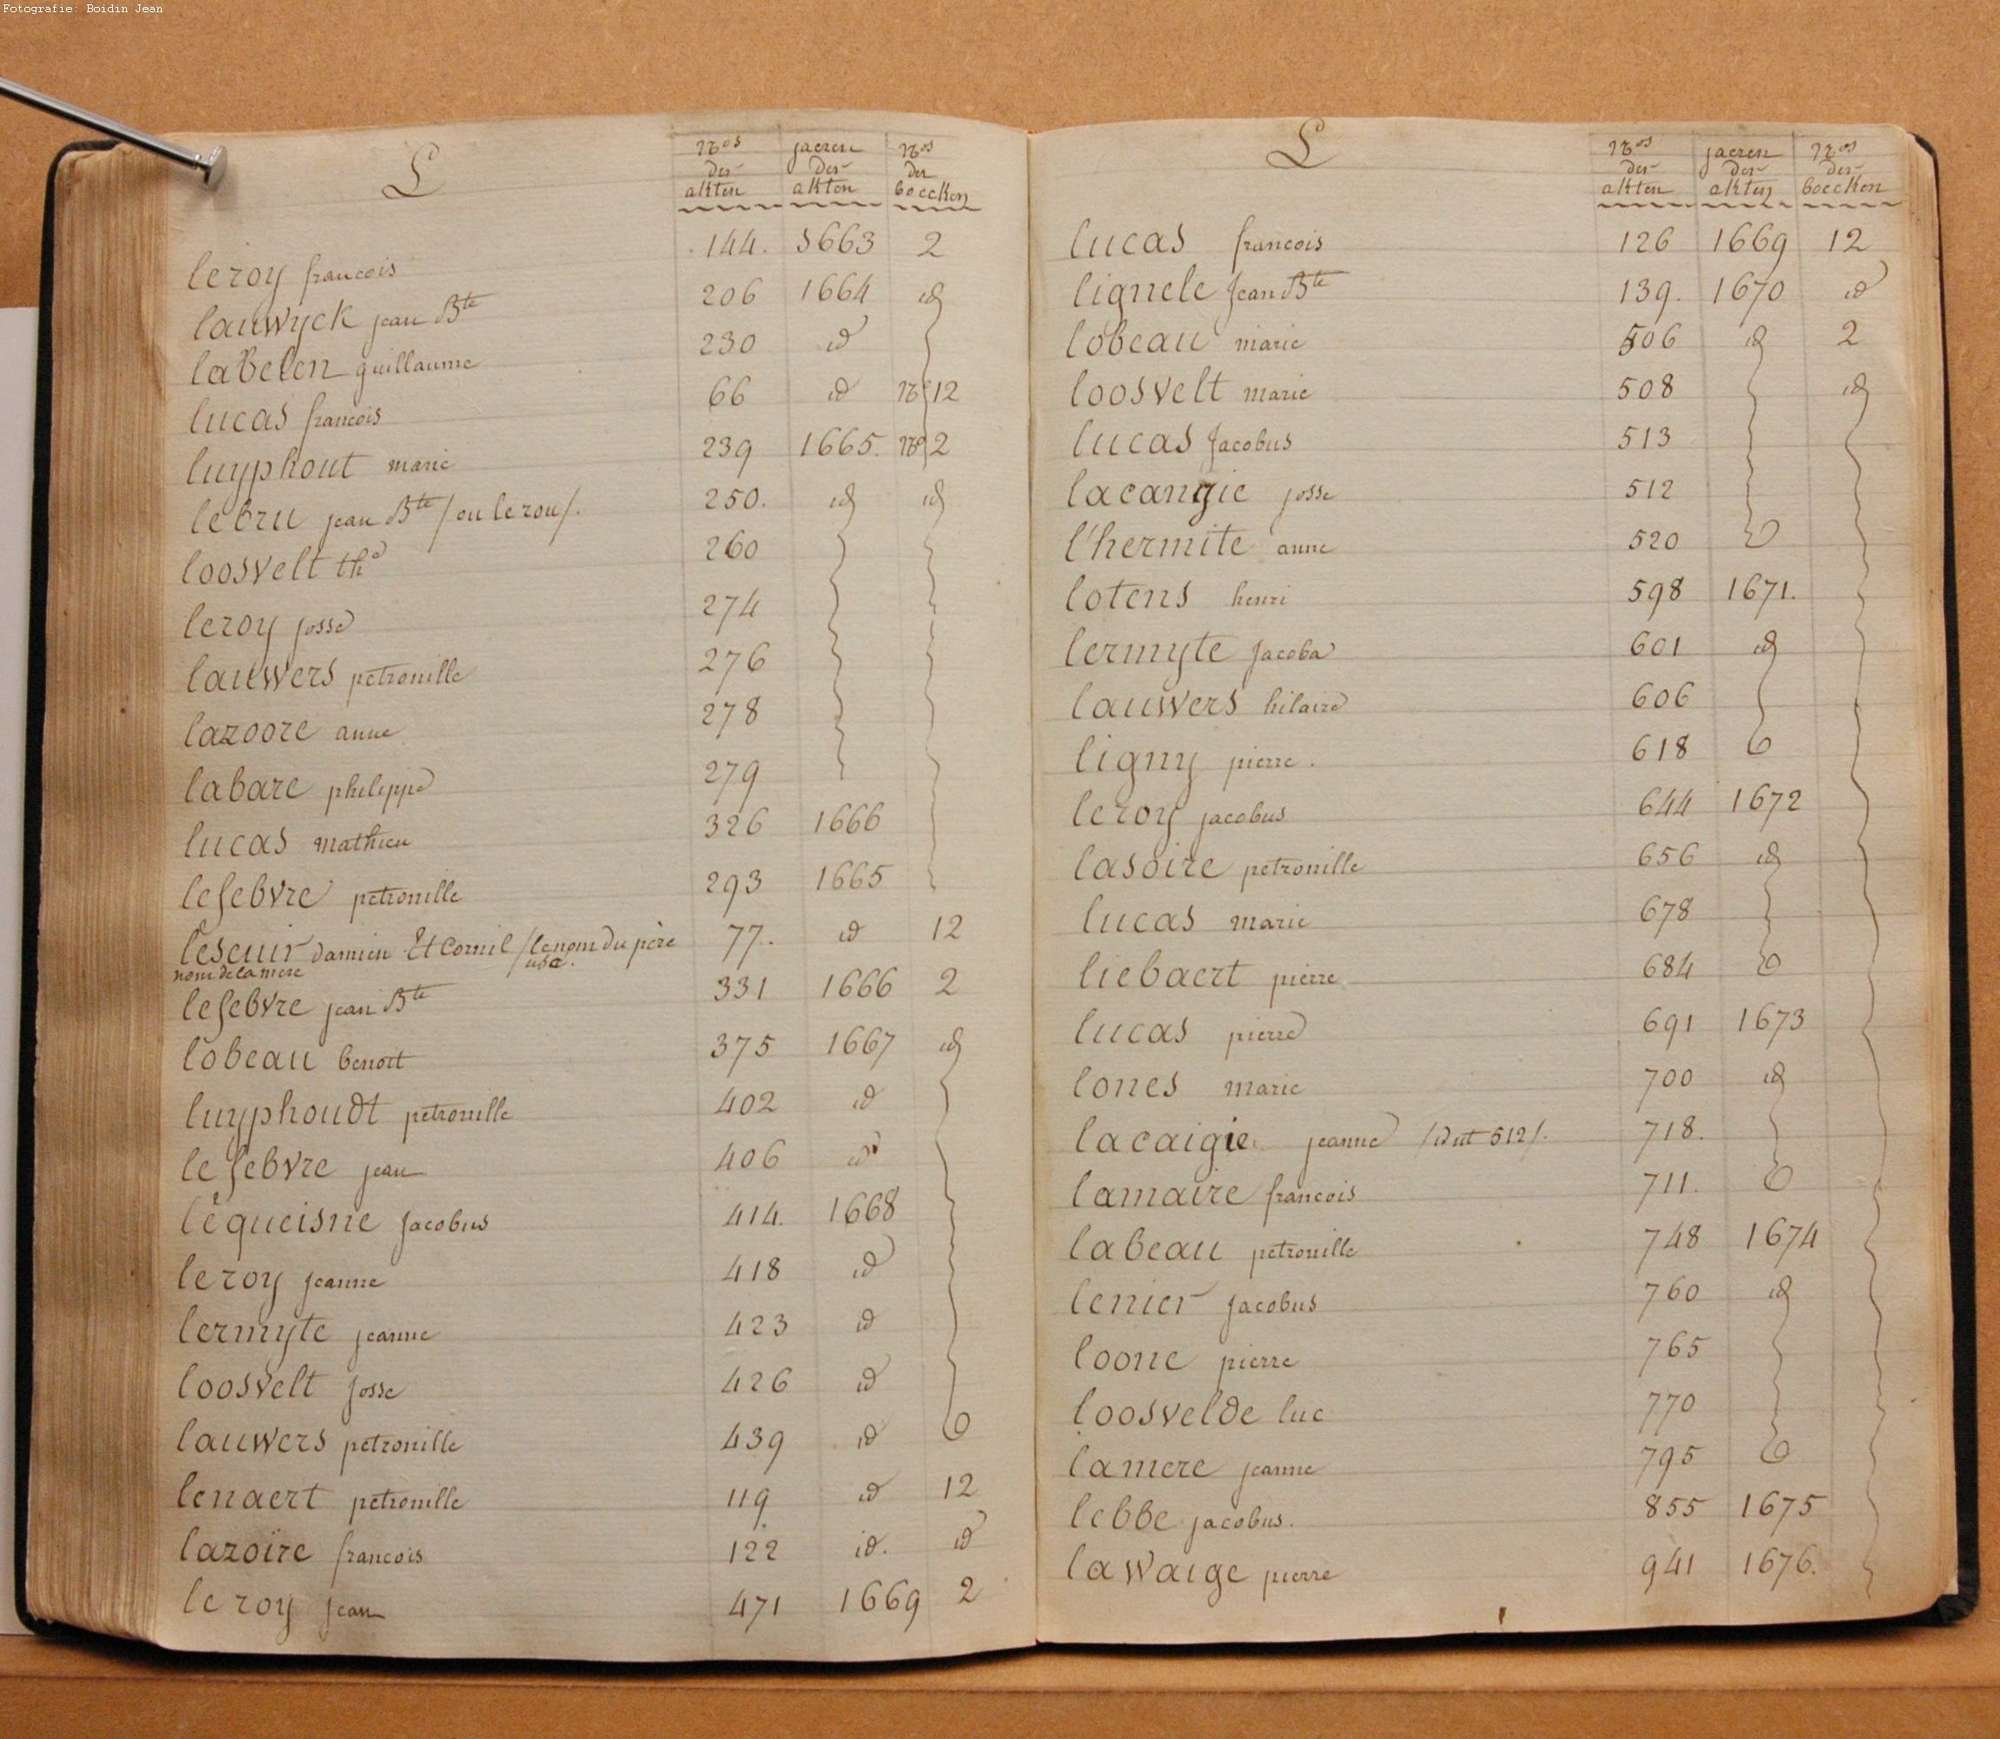 Fotografie: Boidin Jean
L
nos der akten
jaeren der akten
nos der boecken
leroy francois 144. 1663 2
lauwyck jean Bte 206 1664 id
labelen guillaume 230 id
lucas francois 66 id no 12
luyphout marie 239 1665. no 2
lebru jean Bte /ou lerou/. 250. id id
loosvelt thd 260
leroy josse 274
lauwers petronille 276
lazoore anne 278
labare philippe 279
lucas mathieu 326 1666
lefebvre petronille 293 1665
leseuir damien Et Cornil /le nom du père 77. id 12
nom de la mere /usa.
lefebvre jean Bte 331 1666 2
lobeau benoit 375 1667 id
luyphoudt petronille 402 id
le febvre jean 406 id
lequeisne Jacobus 414. 1668
leroy jeanne 418 id
lermyte jeanne 423 id
loosvelt Josse 426 id
lauwers petronille 439 id
lenaert petronille 119 id 12
lazoire francois 122 id. id
le roy jean 471 1669 2
L
nos der akten
jaeren der akten
nos der boecken
lucas francois 126 1669 12
lignele Jean Bte 139. 1670 id
lobeau marie 506 id 2
loosvelt marie 508 id
lucas Jacobus 513
lacangie josse 512
l'hermite anne 520
lotens henri 598 1671.
lermyte Jacoba 601 id
lauwers hilaire 606
ligny pierre. 618
leroy jacobus 644 1672
lasoire petronille 656 id
lucas marie 678
liebaert pierre 684
lucas pierre 691 1673
lones marie 700 id
lacaigie jeanne /idut 512/. 718.
lamaire francois 711.
labeau petronille 748 1674
lenier Jacobus 760 id
loone pierre 765
loosvelde luc 770
lamere jeanne 795
lebbe jacobus. 855 1675
lawaige pierre 941 1676.